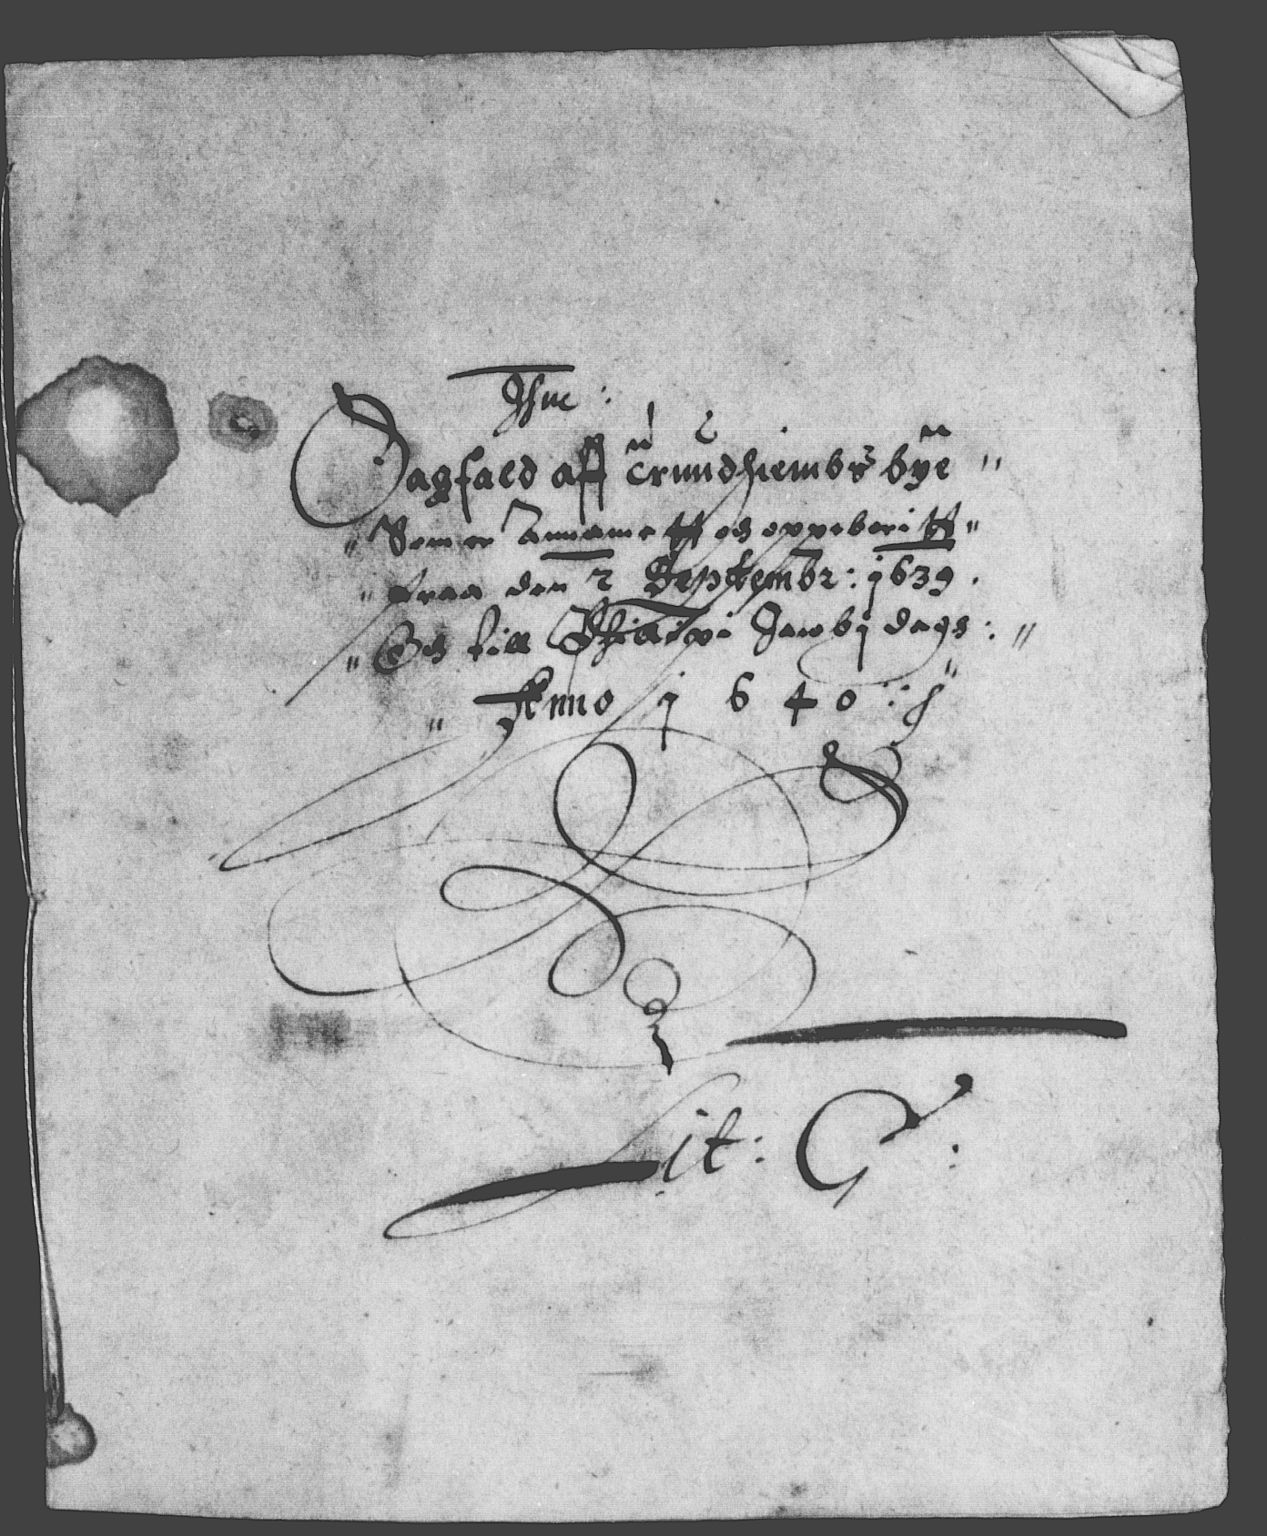 Jhue :
Sagfald aff Trundhiembs bye "
" Som er Annamett och oppeberitt "
" fraa den 2 Septembr: 1639 .
" Och till Phillipi Jacobj dagh : "
" Anno 1640 :
Lit: G :